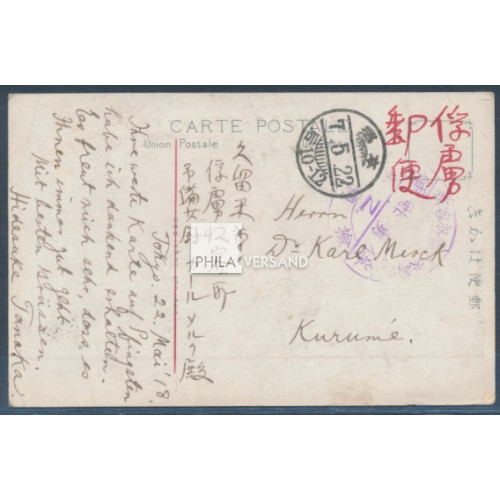 CARTE POST
Union Postale
俘虜
郵便
Tokyo. 22. Mai '18.
Ihre werte Karte auf Pfingsten
habe ich dankend erhalten.
Es freut mich sehr, dass es
Ihnen immer gut geht.
Mit besten Grüssen.
Hidesuke Tanaka
久留米市
俘虜
カールメルク殿
Herrn
Dr. Karl Merck
Kurumé.
7.5.22
きかは便郵
PHILA VERSAND